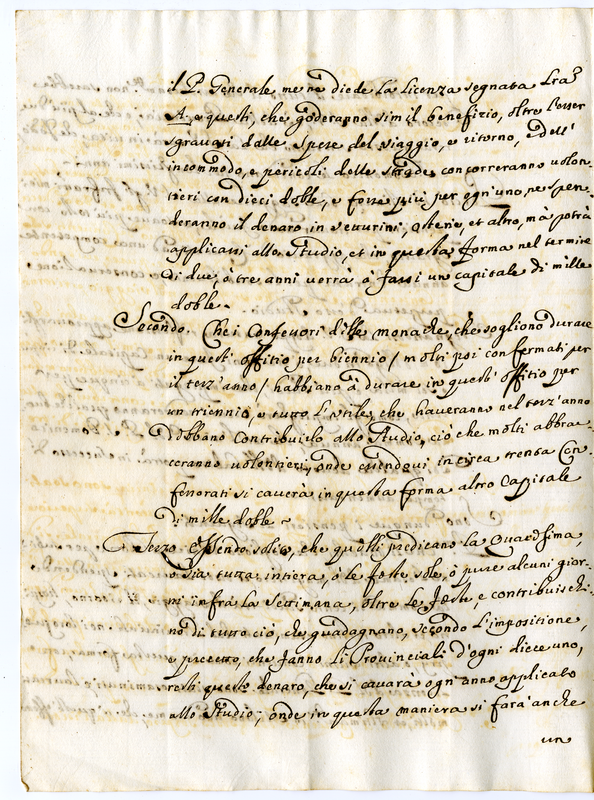 il P. Generale me ne diede la licenza segnata Lra
A. e questi, che goderanno simil benefizio, oltre l'esser
sgravati dalle spese del viaggio, e ritorno, e dell'
incommodo, e pericoli delle strade concorreranno volon-
tieri con dieci doble, e forse più per ogn'uno, ne spen-
deranno il denaro in vetturini, osterie, et altro, mà potrà
applicarsi allo Studio, et in questa forma nel termine
di due, ò tre anni verrà à farsi un capitale di mille
doble.
Secondo. Che i Confessori delle monache, che sogliono durare
in quest' offitio per biennio / molti poi confermati per
il terz'anno / habbiano à durare in quest' offitio per
un triennio, e tutto l'utile, che haveranno nel terz'anno
debbano contribuirlo allo Studio, ciò che molti abbrac-
ceranno volontieri, onde essendovi in circa trenta Con-
fessorati si caverà in questa forma altro Capitale
di mille doble ~
Terzo. Essendo solito, che quelli predicano la Quaresima,
o sia tutta intiera, ò le feste sole, ò pure alcuni gior-
ni infrà la settimana, oltre le feste, e contribuischi-
no di tutto ciò, che guadagnano, secondo l'impositione,
e precetto, che fanno li Provinciali d'ogni diece uno,
resti questo denaro, che si cavarà ogn'anno applicato
allo Studio; onde in questa maniera si farà anche
un